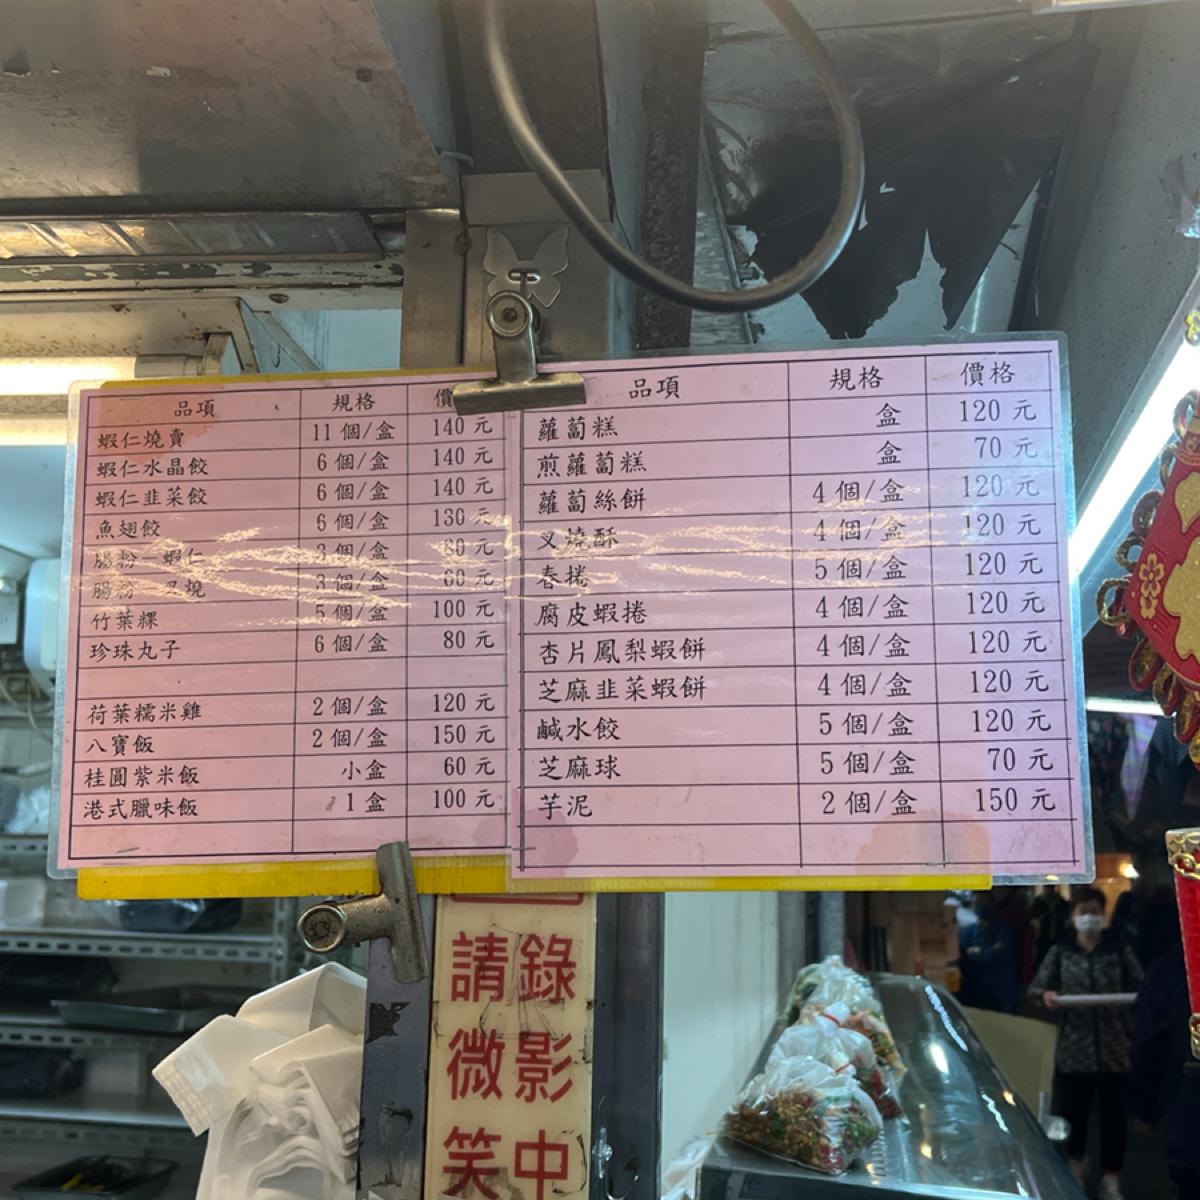 品項 規格 價
蝦仁燒賣 11個/盒 140元
蝦仁水晶餃 6個/盒 140元
蝦仁韭菜餃 6個/盒 140元
魚翅餃 6個/盒 130元
腸粉－蝦仁 3個/盒 60元
腸粉－叉燒 3個/盒 60元
竹葉粿 5個/盒 100元
珍珠丸子 6個/盒 80元
荷葉糯米雞 2個/盒 120元
八寶飯 2個/盒 150元
桂圓紫米飯 小盒 60元
港式臘味飯 1盒 100元
品項 規格 價格
蘿蔔糕 盒 120元
煎蘿蔔糕 盒 70元
蘿蔔絲餅 4個/盒 120元
叉燒酥 4個/盒 120元
春捲 5個/盒 120元
腐皮蝦捲 4個/盒 120元
杏片鳳梨蝦餅 4個/盒 120元
芝麻韭菜蝦餅 4個/盒 120元
鹹水餃 5個/盒 120元
芝麻球 5個/盒 70元
芋泥 2個/盒 150元
錄影中
請微笑